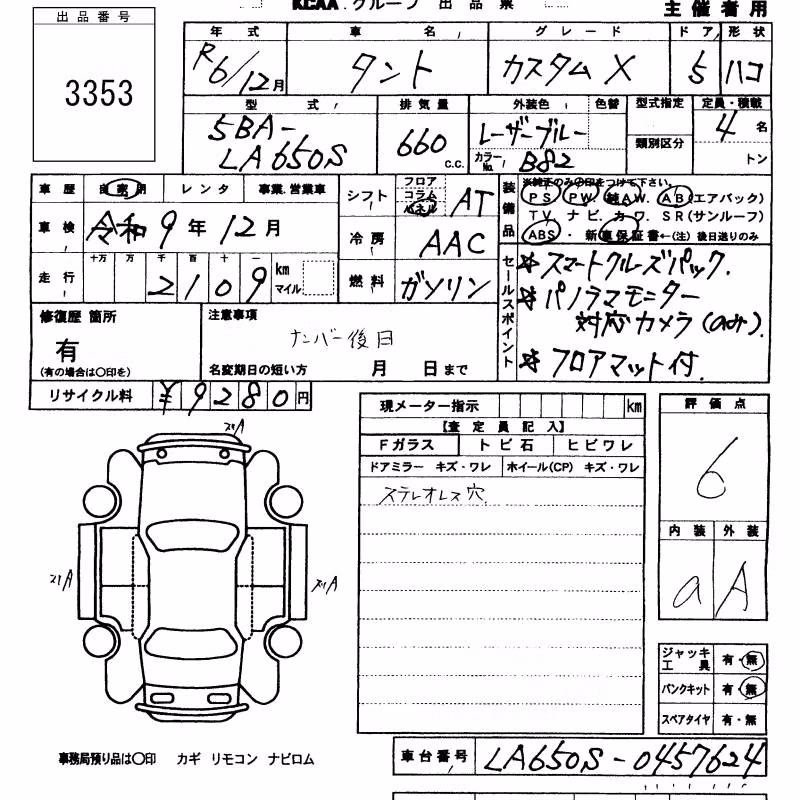 KCAA.グループ 出品票
主催者用
出品番号
3353
年式 車名 グレード ドア 形状
R6/12月 タント カスタムX 5 ハコ
型式 排気量 外装色 色替 型式指定 定員・積載
5BA-LA650S 660 c.c. レーザーブルー 類別区分 4 名
カラーNo. B82 トン
車歴 自家用 レンタ 事業.営業車
車検 令和9年12月
走行 十万 万 千 百 十 一
2109 km マイル
シフト フロア コラム パネル AT
冷房 AAC
燃料 ガソリン
装備品 ※純正のみ○印をつけて下さい。
PS PW. 純AW. AB(エアバック)
TV ナビ.カワ.SR(サンルーフ)
ABS・新車保証書←(注)後日送りのみ
セールスポイント
スマートクルーズパック.
パノラマモニター
対応カメラ
フロアマット付.
修復歴 箇所
有
(有の場合は○印を)
注意事項
ナンバー後日
名変期日の短い方 月 日まで
リサイクル料 ¥9280円
現メーター指示 km
【査定員記入】
Fガラス トビ石 ヒビワレ
ドアミラー キズ・ワレ ホイール(CP) キズ・ワレ
ステレオレス穴
評価点
6
内装 外装
a A
ジャッキ工具 有・無
パンクキット 有・無
スペアタイヤ 有・無
事務局預り品は○印 カギ リモコン ナビロム
車台番号 LA650S-0457624